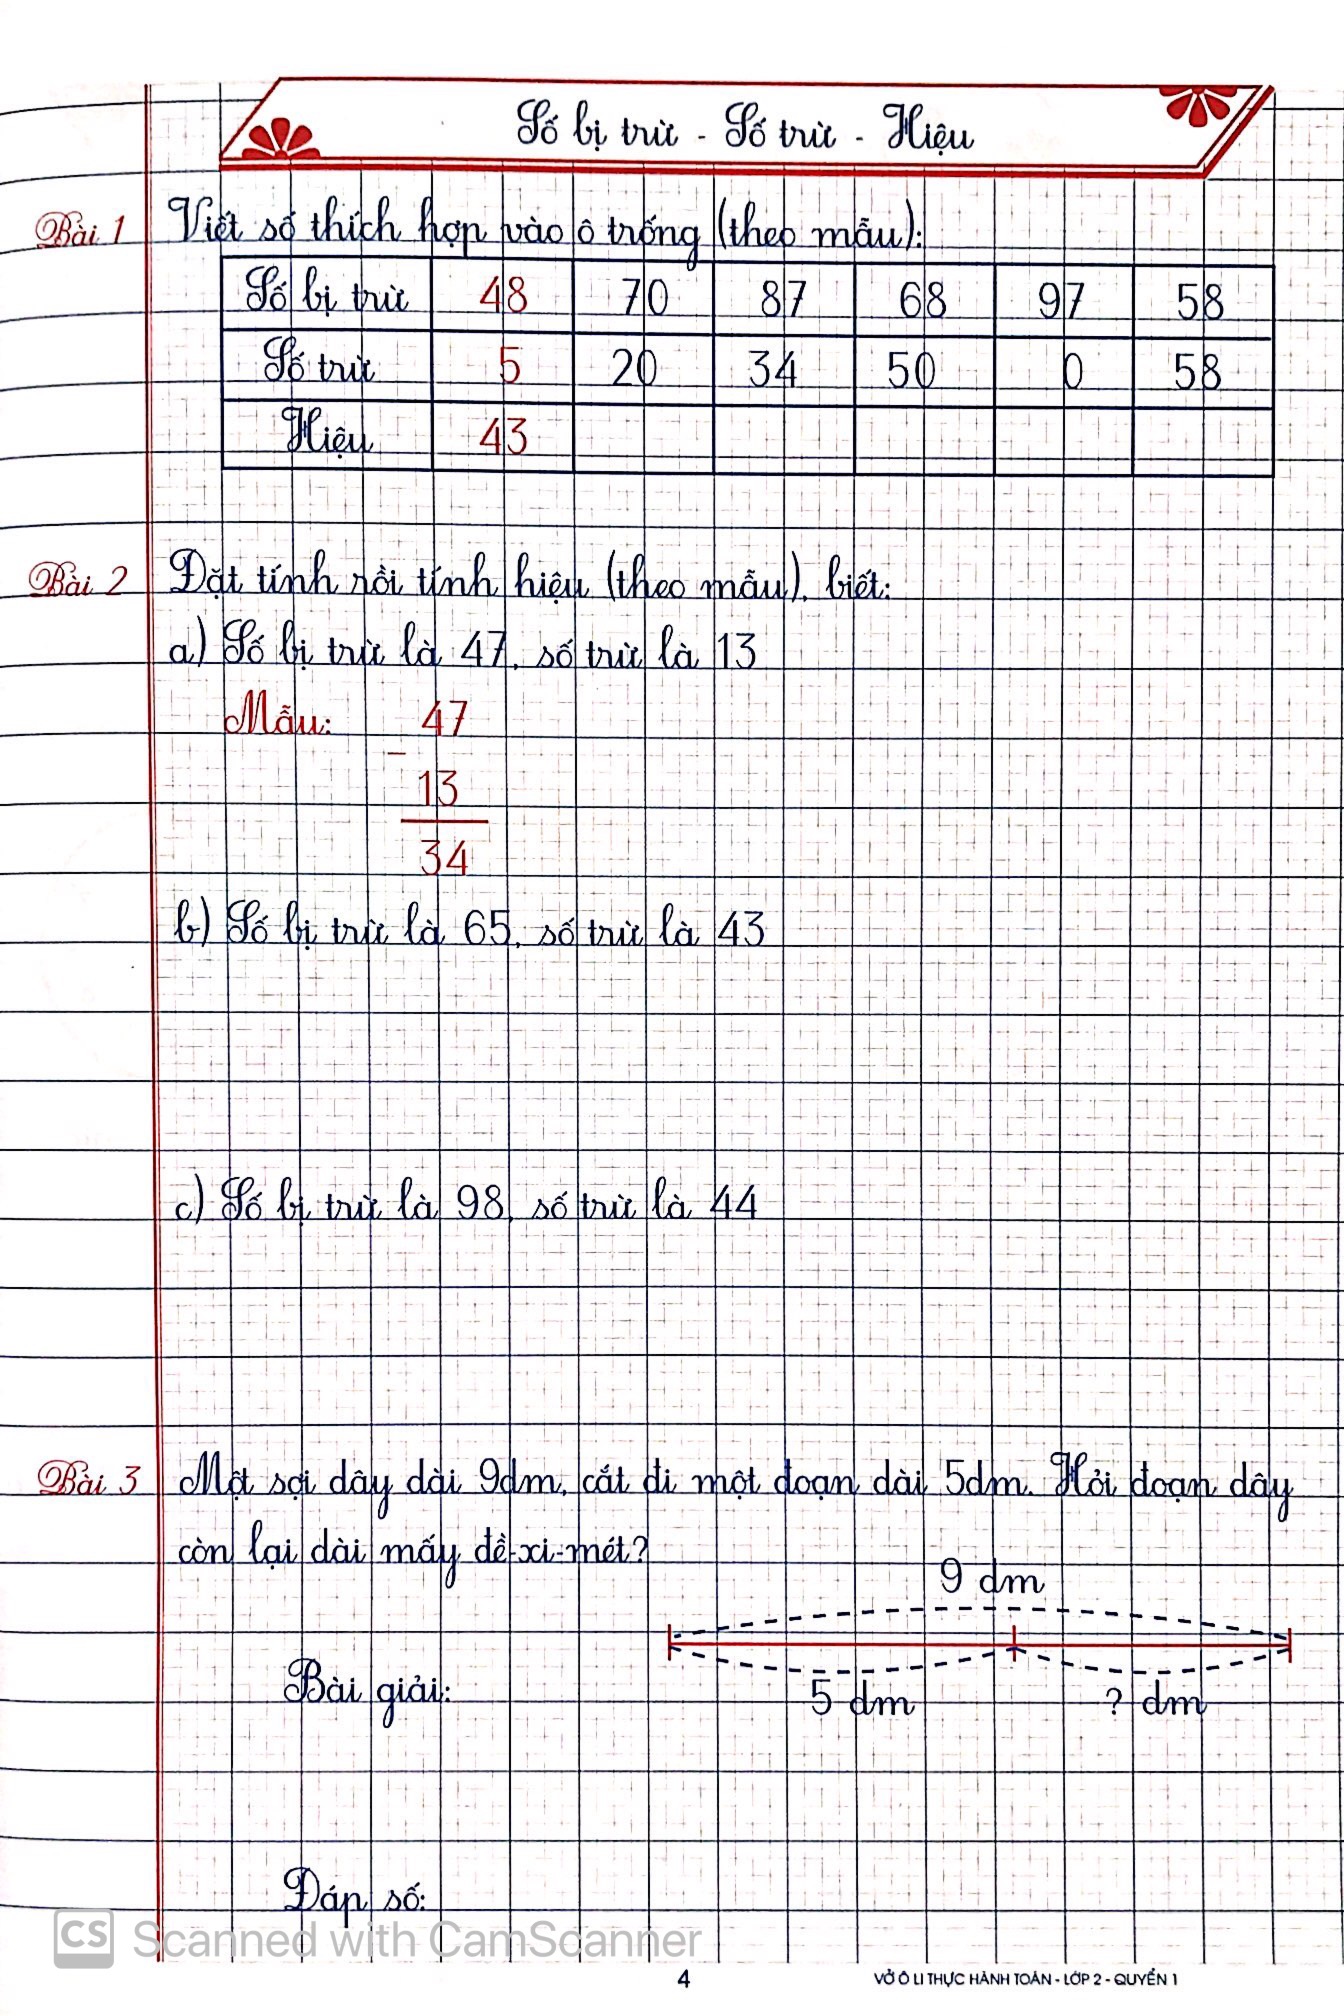 Số bị trừ - Số trừ - Hiệu
Bài 1 Viết số thích hợp vào ô trống (theo mẫu):
Số bị trừ 48 70 87 68 97 58
Số trừ 5 20 34 50 0 58
Hiệu 43
Bài 2 Đặt tính rồi tính hiệu (theo mẫu), biết:
a) Số bị trừ là 47, số trừ là 13
Mẫu: 47
-
13
34
b) Số bị trừ là 65, số trừ là 43
c) Số bị trừ là 98, số trừ là 44
Bài 3 Một sợi dây dài 9dm, cắt đi một đoạn dài 5dm. Hỏi đoạn dây
còn lại dài mấy đề-xi-mét?
9 dm
Bài giải:
5 dm ? dm
Đáp số:
CS Scanned with CamScanner
4 VỞ Ô LI THỰC HÀNH TOÁN - LỚP 2 - QUYỂN 1